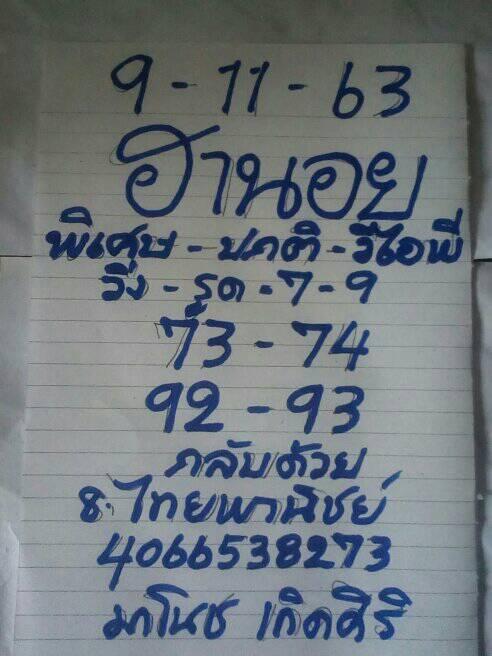 9-11-63
ฮานอย
พิเศษ-ปกติ-วีไอพี
วิ่ง-รูด-7-9
73-74
92-93
กลับด้วย
ธ.ไทยพานิชย์
4066538273
มาโนช เกิดศิริ